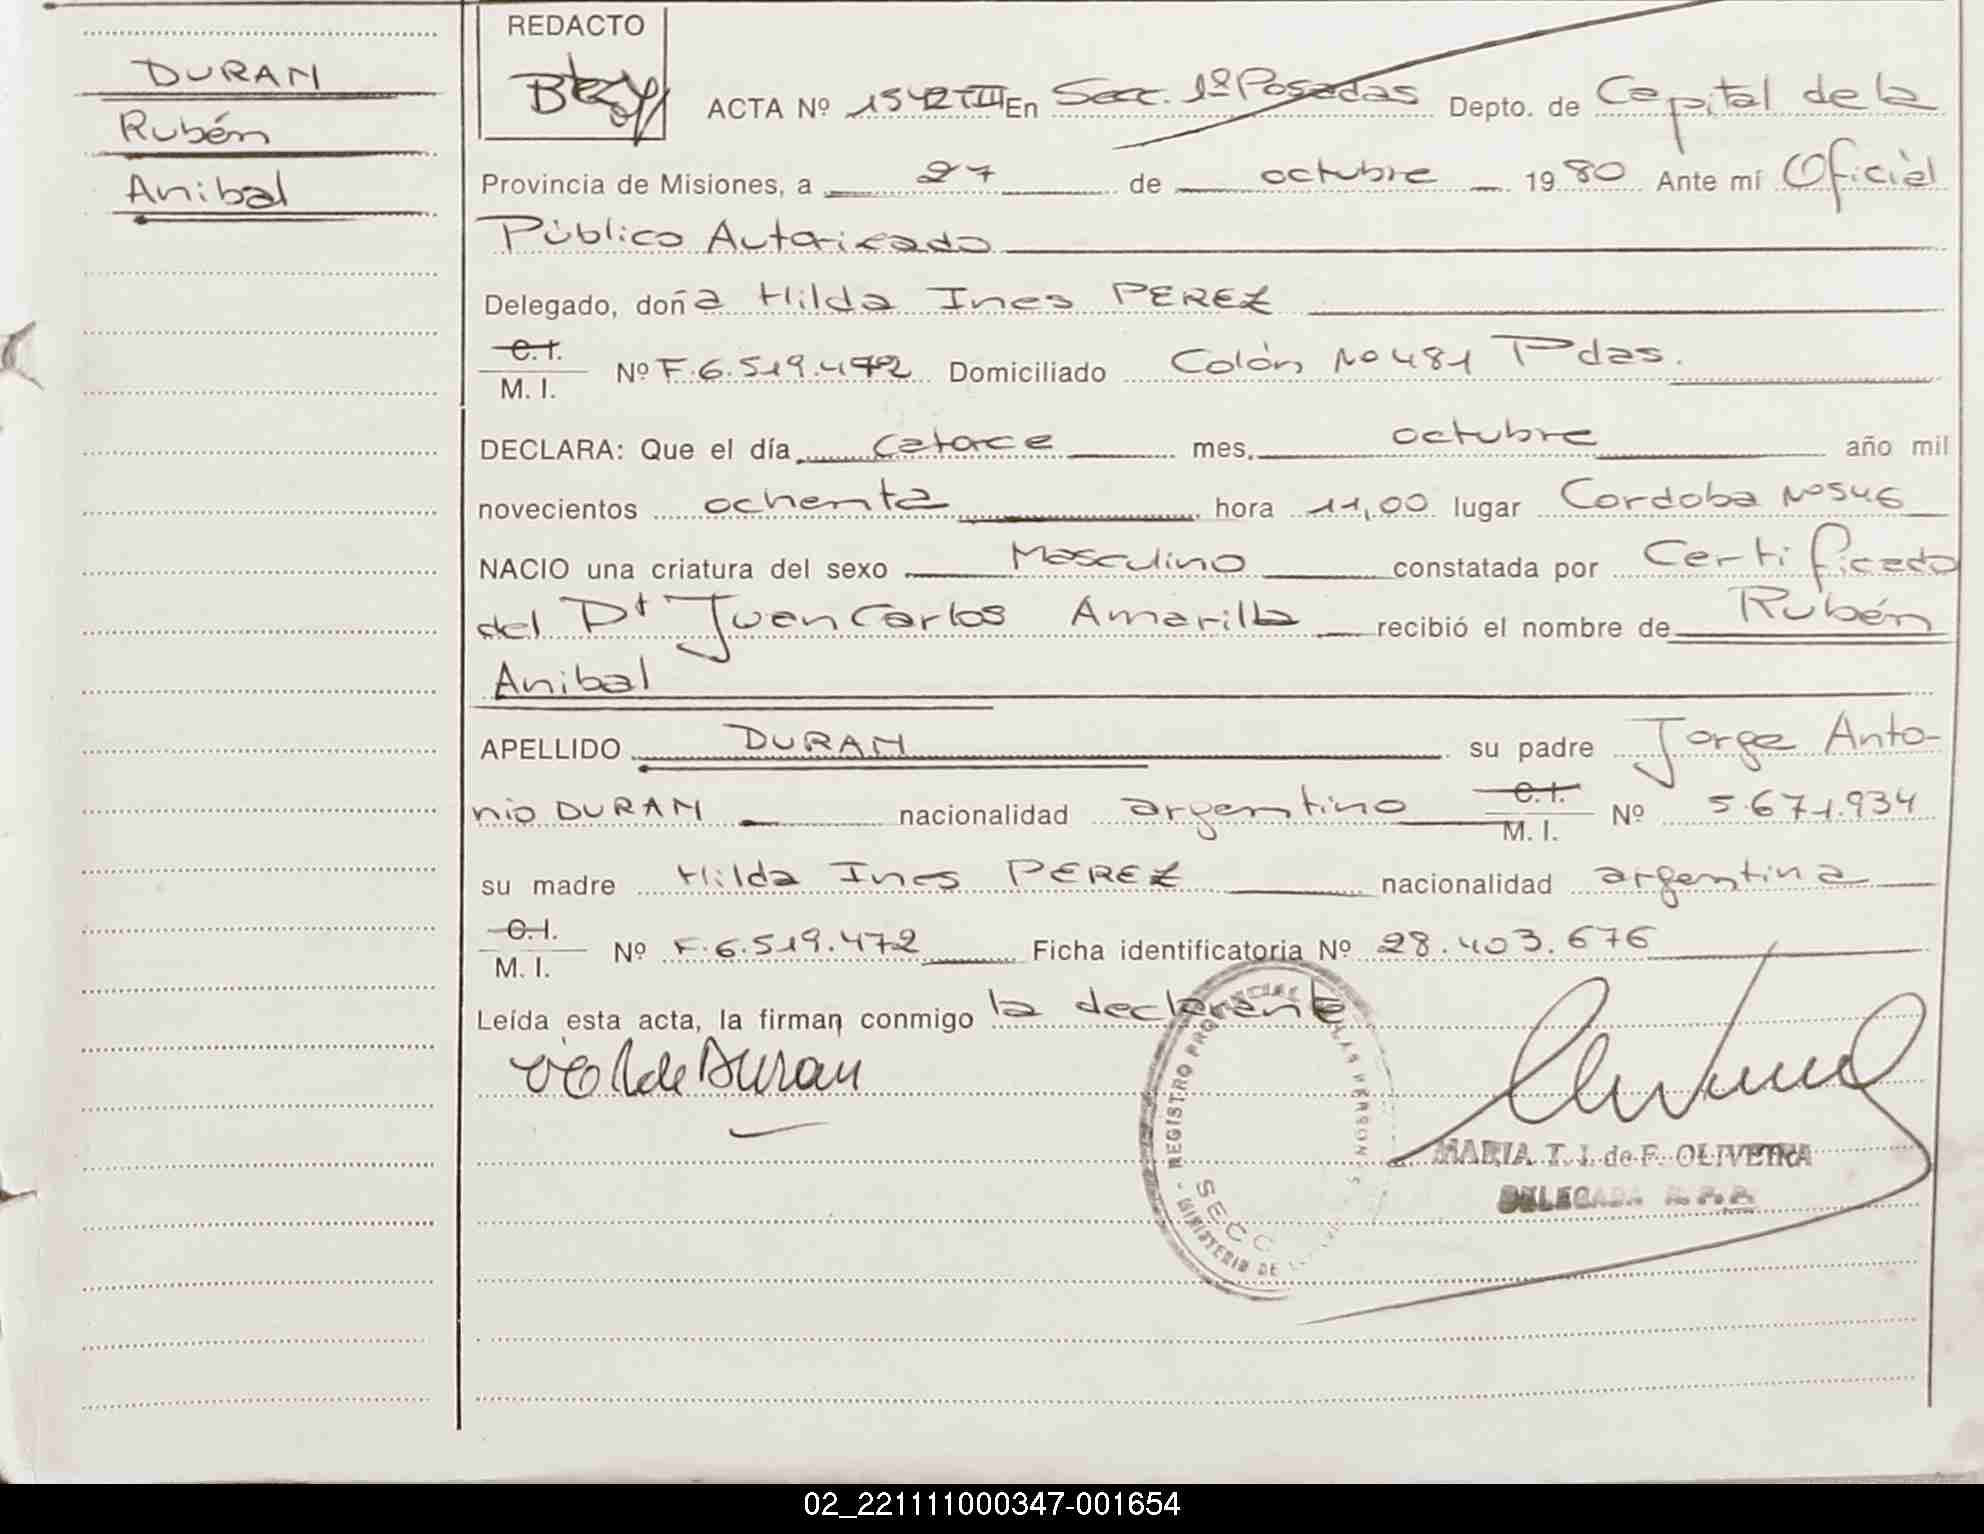 DURAN
Rubén
Anibal
REDACTO
ACTA Nº 1542 TIII En Secc. 1º Posadas Depto. de Capital de la
Provincia de Misiones, a 27 de octubre 1980 Ante mí Oficial
Público Autorizado
Delegado, doña Hilda Ines PEREZ
C.I.
M. I. Nº F.6.519.472 Domiciliado Colón Nº 481 Pdas.
DECLARA: Que el día catorce mes octubre año mil
novecientos ochenta hora 11,00 lugar Cordoba Nº 546
NACIO una criatura del sexo Masculino constatada por Certificado
del Dr Juan Carlos Amarilla recibió el nombre de Rubén
Anibal
APELLIDO DURAN su padre Jorge Anto-
nio DURAN nacionalidad argentino C.I. M. I. Nº 5.671.934
su madre Hilda Ines PEREZ nacionalidad argentina
C.I.
M. I. Nº F.6.519.472 Ficha identificatoria Nº 28.403.676
Leída esta acta, la firman conmigo la declarante
de Duran
REGISTRO PROVINCIAL DE LAS PERSONAS
SECC
MINISTERIO DE
MARIA T. J. de F. OLIVEIRA
DELEGADA R. P. P.
02_221111000347-001654